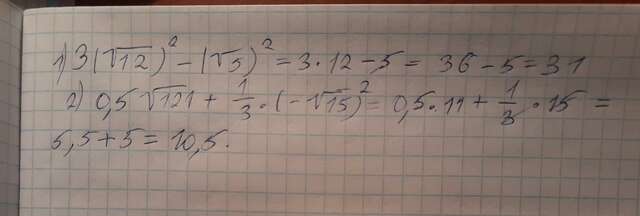 1) 3(√12)² - (√5)² = 3·12 - 5 = 36 - 5 = 31
2) 0,5√121 + 1/3·(-√15)² = 0,5·11 + 1/3·15 =
5,5 + 5 = 10,5.